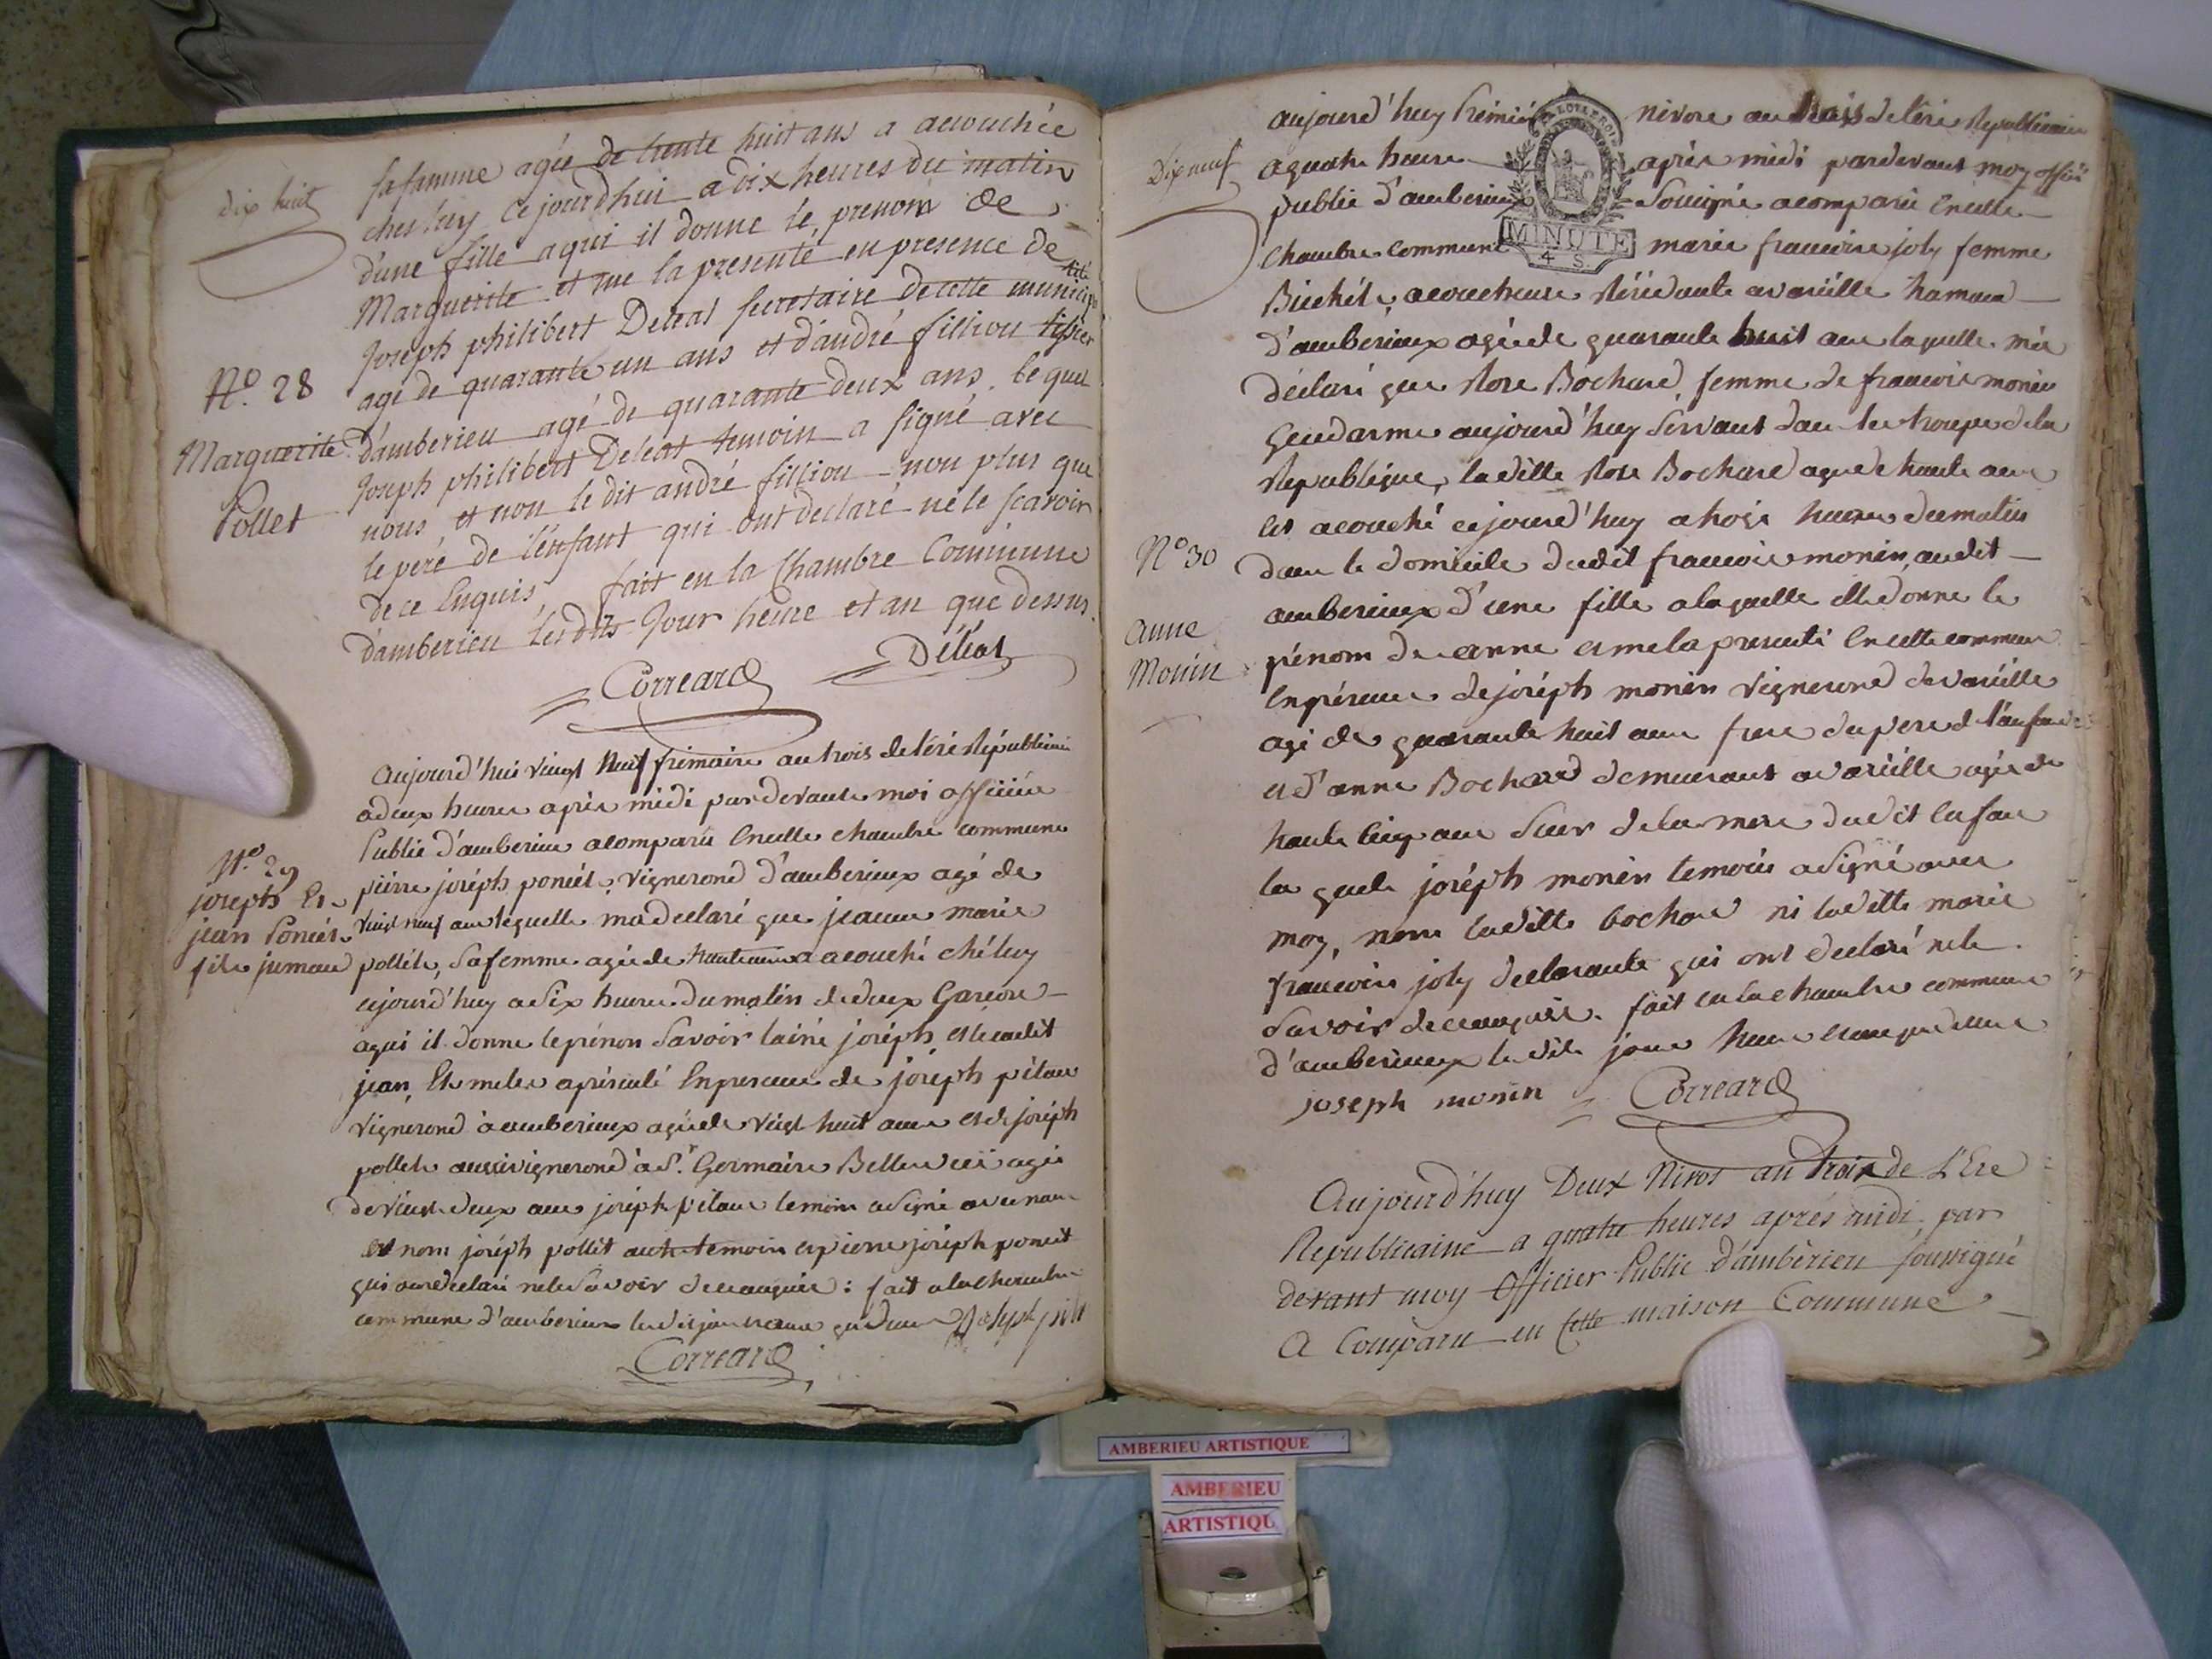 dix huit
sa famme agée de trente huit ans a accouchée
ches luy Ce jourdhui a dix heures du matin
d'une fille aqui il donne le prenom de
Marguerite et me la presente en presence de
Joseph philibert Deléat secretaire de cette municipa
lité
agé de quarante un ans et d'andré fillion tissier
d'amberieu agé de quarante deux ans. le quel
Joseph philibert Deléat temoin a signé avec
nous et non le dit andré fillion non plus que
le peré de l'enfant qui ont declaré ne le scavoir
de ce Enquis fait en la Chambre Commune
d'amberieu les dits Jour heure et an que dessus.
N.º 28
Marguerite
Pollet
Correard Déléat
N.º 29
joseph Et
jean Poniét
fils jumeau
aujourd'hui vingt Neuf frimaire an trois de l'éré Républicaine
a deux heures aprés midi pardevant moi officiér
Public d'amberieu acomparu En cette chambre commune
piérre joséph poniét, vignerond d'amberieux agé de
vingt neuf ans lequelle ma declaré que jeanne marie
pollét, sa femme agée de trente ans a acouché ché luy
cejourd'huy a dix heures du matin de deux Garcons
aqui il donne le prénon Savoir lainé joséph et le cadét
jean, Et me les a présenté En presence de joséph pilau
vignerond à amberieux agé de vingt huit ans et de joséph
pollét aussi vignerond à S.t Germain agé
de vingt deux ans joséph pilau temoin a signé avec nous
et nom joséph pollét autre temoin et pierre joséph poniét
qui ont declaré ne le Savoir de ce enquis : fait a la chambre
commune d'amberieux les dit jour et an que dessus Joseph pilo
Correard
Dix neuf
aujourd'huy Prémiér nivose an trois de l'ére Républicaine
a quatre heures aprés midi pardevant moy officiér
public d'amberieux Soussigné acomparu En cette
chambre commune marie francoise joly femme
MINUTE
4 S.
acoucheuse résidante a vareille hamaud
d'amberieux agée de quarante huit ans laquelle m'a
déclaré que Rose Bochard, femme de francois monin
Gendarme aujourd'huy Servant dans les troupes de la
Republique, la ditte Rose Bochard agée de trente ans
et acouché cejourd'huy a trois heures du matin
dans le domicile dudit francois monin, audit
amberieux d'une fille a laquelle elle donne le
prénom de anne et me la presenté En cette commune
En présence de joséph monin vignerond de vareille
agé de quarante huit ans frere du pere de l'anfant
et d'anne Bochard demeurant a vareille agée de
trente cinq ans Seur de la mere dudit Enfan
les quels joséph monin temoin a Signé avec
moy, nom laditte bochard ni laditte marie
francoise joly declarante qui ont declaré ne le
Savoir de ce enquise. fait En la chambre commune
d'amberieux les dits jour heure et an que dessus
N.º 30
anne
Monin
joseph monin Correard
Aujourd'huy Deux Nivos an trois de L'Ere
Republicaine a quatre heures aprés midi par
devant moy Officier Public d'amberieu soussigné
A Comparu en Cette maison Commune
AMBERIEU ARTISTIQUE
AMBERIEU
ARTISTIQU